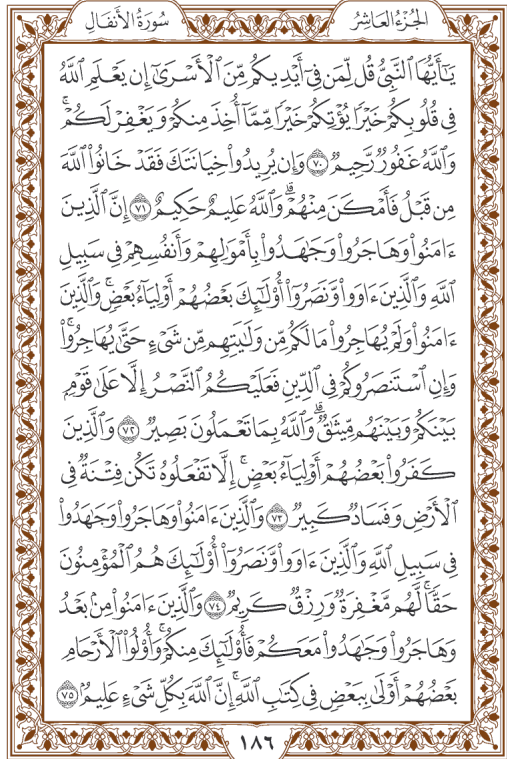 الجُزْءُ العَاشِرُ
سُورَةُ الأَنفَالِ
يَٰٓأَيُّهَا ٱلنَّبِيُّ قُل لِّمَن فِىٓ أَيْدِيكُم مِّنَ ٱلْأَسْرَىٰٓ إِن يَعْلَمِ ٱللَّهُ
فِى قُلُوبِكُمْ خَيْرًا يُؤْتِكُمْ خَيْرًا مِّمَّآ أُخِذَ مِنكُمْ وَيَغْفِرْ لَكُمْ ۚ
وَٱللَّهُ غَفُورٌ رَّحِيمٌ ٧٠ وَإِن يُرِيدُوا۟ خِيَانَتَكَ فَقَدْ خَانُوا۟ ٱللَّهَ
مِن قَبْلُ فَأَمْكَنَ مِنْهُمْ ۗ وَٱللَّهُ عَلِيمٌ حَكِيمٌ ٧١ إِنَّ ٱلَّذِينَ
ءَامَنُوا۟ وَهَاجَرُوا۟ وَجَٰهَدُوا۟ بِأَمْوَٰلِهِمْ وَأَنفُسِهِمْ فِى سَبِيلِ
ٱللَّهِ وَٱلَّذِينَ ءَاوَوا۟ وَّنَصَرُوٓا۟ أُو۟لَٰٓئِكَ بَعْضُهُمْ أَوْلِيَآءُ بَعْضٍ ۚ وَٱلَّذِينَ
ءَامَنُوا۟ وَلَمْ يُهَاجِرُوا۟ مَا لَكُم مِّن وَلَٰيَتِهِم مِّن شَىْءٍ حَتَّىٰ يُهَاجِرُوا۟ ۚ
وَإِنِ ٱسْتَنصَرُوكُمْ فِى ٱلدِّينِ فَعَلَيْكُمُ ٱلنَّصْرُ إِلَّا عَلَىٰ قَوْمٍۭ
بَيْنَكُمْ وَبَيْنَهُم مِّيثَٰقٌ ۗ وَٱللَّهُ بِمَا تَعْمَلُونَ بَصِيرٌ ٧٢ وَٱلَّذِينَ
كَفَرُوا۟ بَعْضُهُمْ أَوْلِيَآءُ بَعْضٍ ۚ إِلَّا تَفْعَلُوهُ تَكُن فِتْنَةٌ فِى
ٱلْأَرْضِ وَفَسَادٌ كَبِيرٌ ٧٣ وَٱلَّذِينَ ءَامَنُوا۟ وَهَاجَرُوا۟ وَجَٰهَدُوا۟
فِى سَبِيلِ ٱللَّهِ وَٱلَّذِينَ ءَاوَوا۟ وَّنَصَرُوٓا۟ أُو۟لَٰٓئِكَ هُمُ ٱلْمُؤْمِنُونَ
حَقًّا ۚ لَّهُم مَّغْفِرَةٌ وَرِزْقٌ كَرِيمٌ ٧٤ وَٱلَّذِينَ ءَامَنُوا۟ مِنۢ بَعْدُ
وَهَاجَرُوا۟ وَجَٰهَدُوا۟ مَعَكُمْ فَأُو۟لَٰٓئِكَ مِنكُمْ ۚ وَأُو۟لُوا۟ ٱلْأَرْحَامِ
بَعْضُهُمْ أَوْلَىٰ بِبَعْضٍ فِى كِتَٰبِ ٱللَّهِ ۗ إِنَّ ٱللَّهَ بِكُلِّ شَىْءٍ عَلِيمٌۢ ٧٥
١٨٦